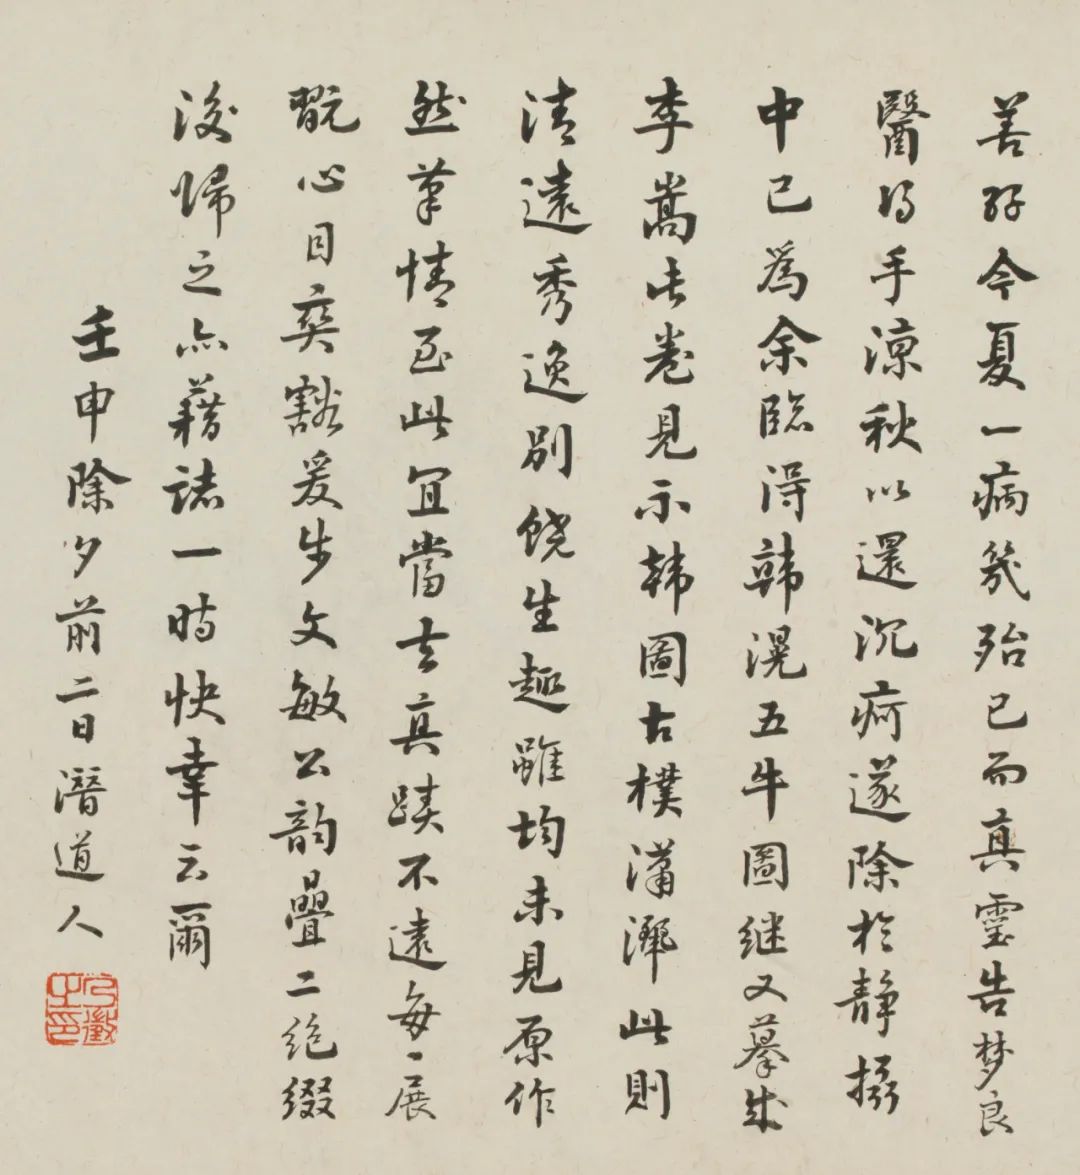 善孖今夏一病幾殆已而真靈告梦良
醫得手涼秋以還沉疴遂除於静攝
中已為余臨得韩滉五牛圖继又摹成
李嵩长卷見示韩圖古樸瀟灑此則
清遠秀逸别饶生趣雖均未見原作
然筆情至此宜當去真蹟不遠每々展
翫心目奕豁爰步文敏公韵疊二絶缀
後歸之亦藉誌一時快幸云爾
壬申除夕前二日潛道人